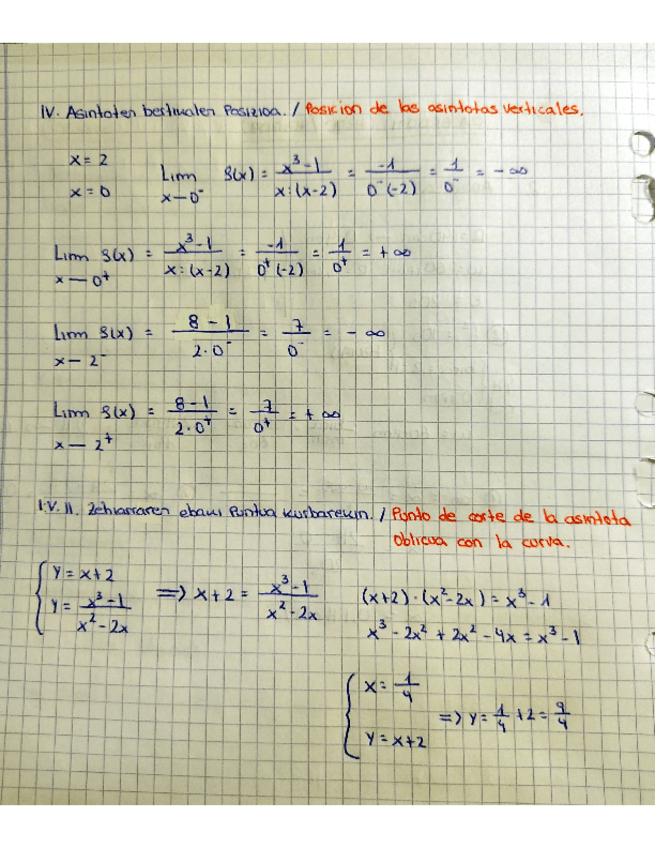 IV. Asintoten bertikalen Posizioa. / Posicion de las asintotas verticales.
x = 2
x = 0
Lim x—0⁻ f(x) = (x³-1)/(x·(x-2)) = -1/(0⁻(-2)) = 1/0⁻ = -∞
Lim x—0⁺ f(x) = (x³-1)/(x·(x-2)) = -1/(0⁺(-2)) = 1/0⁺ = +∞
Lim x—2⁻ f(x) = (8-1)/(2·0⁻) = 7/0⁻ = -∞
Lim x—2⁺ f(x) = (8-1)/(2·0⁺) = 7/0⁺ = +∞
I.V.II. Zehiarraren ebaki Puntua kurbarekin. / Punto de corte de la asintota
oblicua con la curva.
{ y = x+2
y = (x³-1)/(x²-2x) => x+2 = (x³-1)/(x²-2x)
(x+2)·(x²-2x) = x³-1
x³-2x²+2x²-4x = x³-1
{ x = 1/4
y = x+2 => y = 1/4 + 2 = 9/4